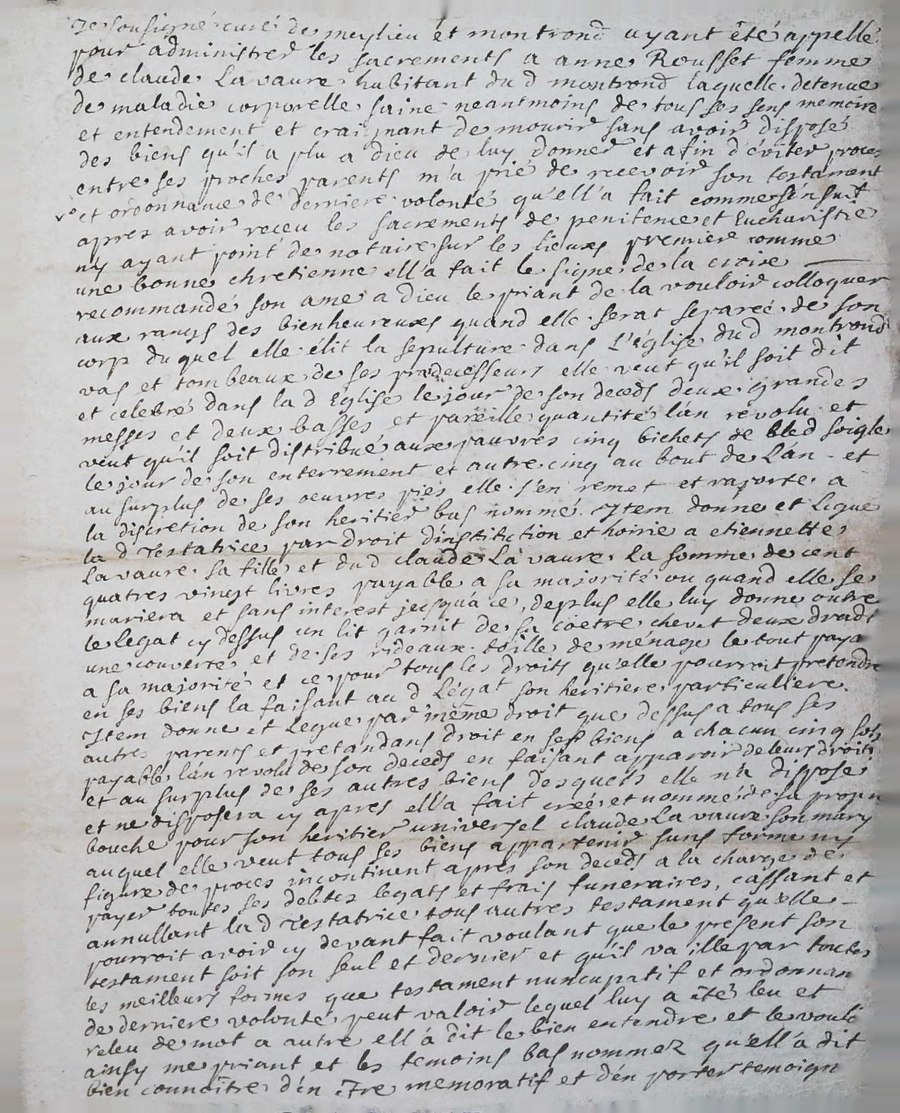 Je sousigné curé de meylieu et montrond ayant été appellé
pour administrer les sacrements a anne Rousset femme
de claude Lavaure habitant dud montrond laquelle detenue
de maladie corporelle saine neantmoins de tous ses sens memoire
et entendement et craignant de mourir sans avoir disposé
des biens qu'il a plu a dieu de luy donner et afin d'éviter proces
entre ses proches parents m'a prié de recevoir son testament
et ordonnance de derniere volonté qu'ell'a fait comm'ersensuit
apres avoir receu les sacrements de penitence et Eucharistie
ny ayant point de notaire sur les lieux premiere comme
une bonne chretienne ell'a fait le signe de la croix
recommandé son ame a Dieu le priant de la vouloir colloquer
aux rangs des bienheureux quand elle serat separeé de son
corp duquel elle élit la sepulture dans L'église dud montrond
vas et tombeaux de ses predecesseurs elle veut qu'il soit dit
et celebré dans la d Eglise le jour de son deceds deux grandes
messes et deux basses et pareille quantité lan revolu et
veut qu'il soit distribué aux pauvres cinq bichets de bled soigle
le jour de son enterrement et autre cinq au bout de L'an et
au surplus de ses oeuvres pies elle s'en remet et raporte a
la discretion de son heritier bas nommé. Item donne et Legue
la d Testatrice par droit d'institution et hoirie a etiennette
Lavaure sa fille et dud claude La vaure la somme de cent
quatres vingt livres payable a sa majorité ou quand elle se
mariera et sans interest jusqua ce, deplus elle luy donne outre
le legat cy dessus un lit garnit de sa coëtre chevet deux draps
une couverte et de ses rideaux toille de ménage le tout paya
a sa majorité et ce pour tous les droits qu'elle pourrait pretendre
en ses biens la faisant au d Légat son héritiere particuliere.
Item donne et Legue par même droit que dessus a tous ses
autres parents et pretandans droit en ses biens a chacun cinq sols
payable l'an revolu de son deceds en faisant apparoir de leurs droits
et au surplus de ses autres biens desquels elle n'a disposé
et ne disposera cy apres ell'a fait creé et nommé de sa propre
bouche pour son heritier universel claude La vaure son mary
auquel elle veut tous ses biens appartenir sans forme ny
figure de proces incontinent apres son deceds a la charge de
payer toutes ses debtes legats et frais funeraires, cassant et
annullant la d Testatrice tous autres testament qu'elle
pourroit avoir cy devant fait voulant que le present son
testament soit son seul et dernier et qu'il vaille par toutes
les meilleurs formes que testament nuncupatif et ordonnan
de derniere volonté peut valoir lequel luy a été leu et
releu de mot a autre ell'a dit le bien entendre et le vouls
ainsy me priant et les temoins bas nommez qu'ell'a dit
bien connoître d'en être memoratif et d'en porter temoign